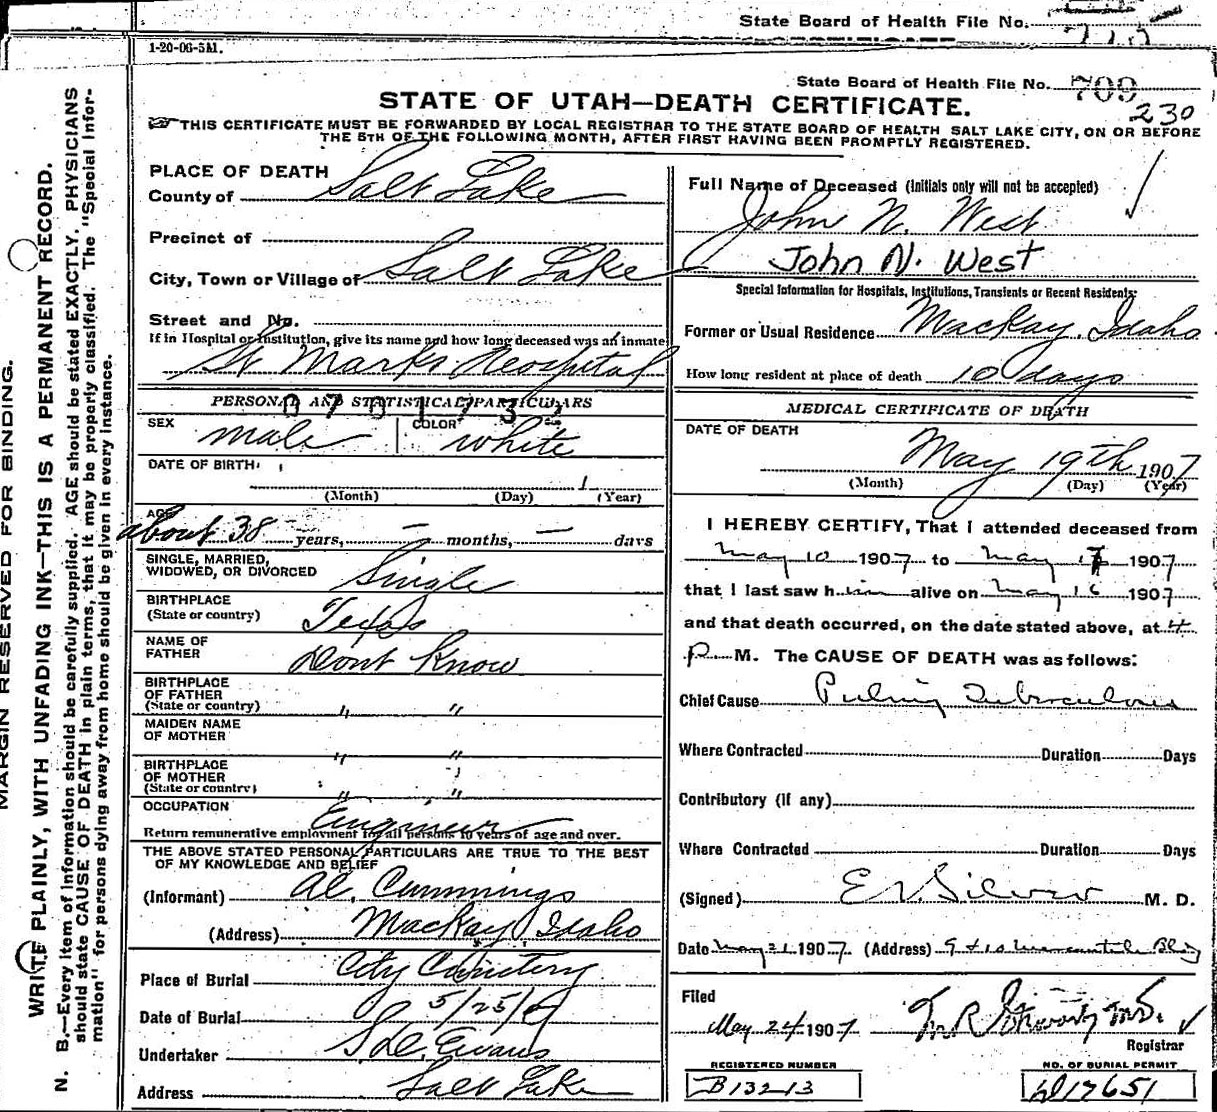 State Board of Health File No.
1-20-06-5M.
State Board of Health File No. 709
230
STATE OF UTAH—DEATH CERTIFICATE.
THIS CERTIFICATE MUST BE FORWARDED BY LOCAL REGISTRAR TO THE STATE BOARD OF HEALTH SALT LAKE CITY, ON OR BEFORE
THE 5TH OF THE FOLLOWING MONTH, AFTER FIRST HAVING BEEN PROMPTLY REGISTERED.
MARGIN RESERVED FOR BINDING.
WRITE PLAINLY, WITH UNFADING INK—THIS IS A PERMANENT RECORD.
N. B.—Every item of information should be carefully supplied. AGE should be stated EXACTLY. PHYSICIANS
should state CAUSE OF DEATH in plain terms, that it may be properly classified. The "Special Infor-
mation" for persons dying away from home should be given in every instance.
PLACE OF DEATH
County of Salt Lake
Precinct of
City, Town or Village of Salt Lake
Street and No.
If in Hospital or Institution, give its name and how long deceased was an inmate
St Marks Hospital
PERSONAL AND STATISTICAL PARTICULARS
SEX male COLOR white
DATE OF BIRTH
(Month) (Day) (Year)
AGE about 38 years, — months, — days
SINGLE, MARRIED,
WIDOWED, OR DIVORCED Single
BIRTHPLACE
(State or country) Texas
NAME OF
FATHER Dont Know
BIRTHPLACE
OF FATHER
(State or country) " "
MAIDEN NAME
OF MOTHER " "
BIRTHPLACE
OF MOTHER
(State or country) " "
OCCUPATION Engineer
Return remunerative employment for all persons 10 years of age and over.
THE ABOVE STATED PERSONAL PARTICULARS ARE TRUE TO THE BEST
OF MY KNOWLEDGE AND BELIEF
(Informant) Al. Cummings
(Address) Mackay Idaho
Place of Burial City Cemetery
Date of Burial 5/25/07
Undertaker S. D. Evans
Address Salt Lake
Full Name of Deceased (Initials only will not be accepted)
John N. West
John N. West
Special Information for Hospitals, Institutions, Transients or Recent Residents:
Former or Usual Residence Mackay, Idaho
How long resident at place of death 10 days
MEDICAL CERTIFICATE OF DEATH
DATE OF DEATH
May 19th 1907
(Month) (Day) (Year)
I HEREBY CERTIFY, That I attended deceased from
May 10 1907 to May 17 1907
that I last saw him alive on May 16 1907
and that death occurred, on the date stated above, at 4
P. M. The CAUSE OF DEATH was as follows:
Chief Cause Tuberculosis
Where Contracted Duration Days
Contributory (if any)
Where Contracted Duration Days
(Signed) M. D.
Date May 21 1907 (Address) 9 & 10 Mercantile Bldg
Filed
May 24 1907
Registrar
REGISTERED NUMBER
B13213
NO. OF BURIAL PERMIT
17651